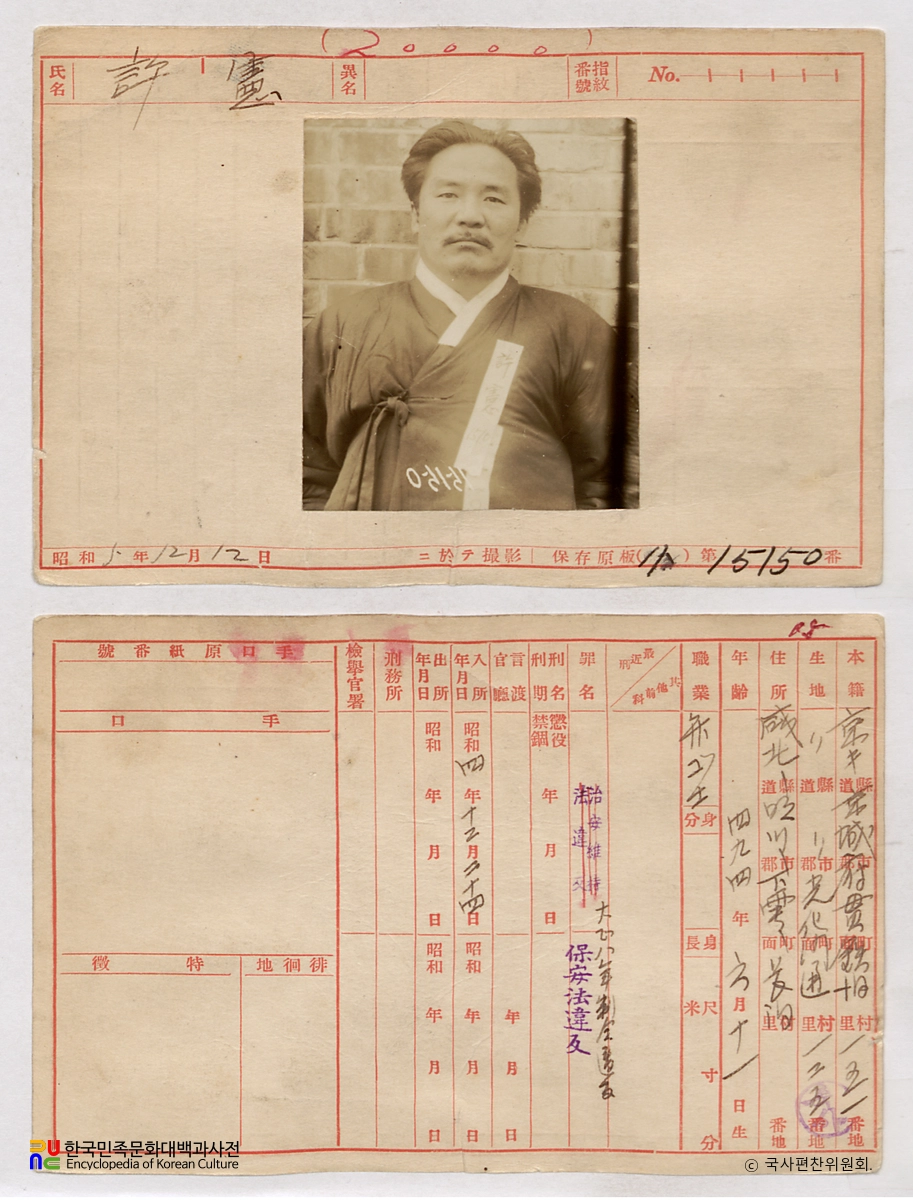 (20000)
氏名 許 憲 異名 指紋番號 No.
許 憲
15150
昭和 5 年 12 月 12 日 ニ於テ撮影 保存原板( ) 第 15150 番
本籍 道縣 京城府貫鐵 市郡 町面 村里 一五一 番地
生地 〃 道縣 〃 市郡 光化門通 町面 村里 一二五 番地
住所 咸北 道縣 市郡 町面 村里 番地
年齡 四 九 四 年 六 月 十一 日生
職業
身分
身長 米尺 寸 分
最近刑其他前科
罪名 治安維持法違反
大正八年制令違反
保安法違反
刑名刑期 懲役禁錮 年 月 日
言渡官廳 年 月 日
入所年月日 昭和 四 年 十二 月 二十四 日 昭和 年 月 日
出所年月日 昭和 年 月 日 昭和 年 月 日
刑務所
檢擧官署
手口原紙番號
手口
徘徊地
特徵
한국민족문화대백과사전
Encyclopedia of Korean Culture
© 국사편찬위원회.